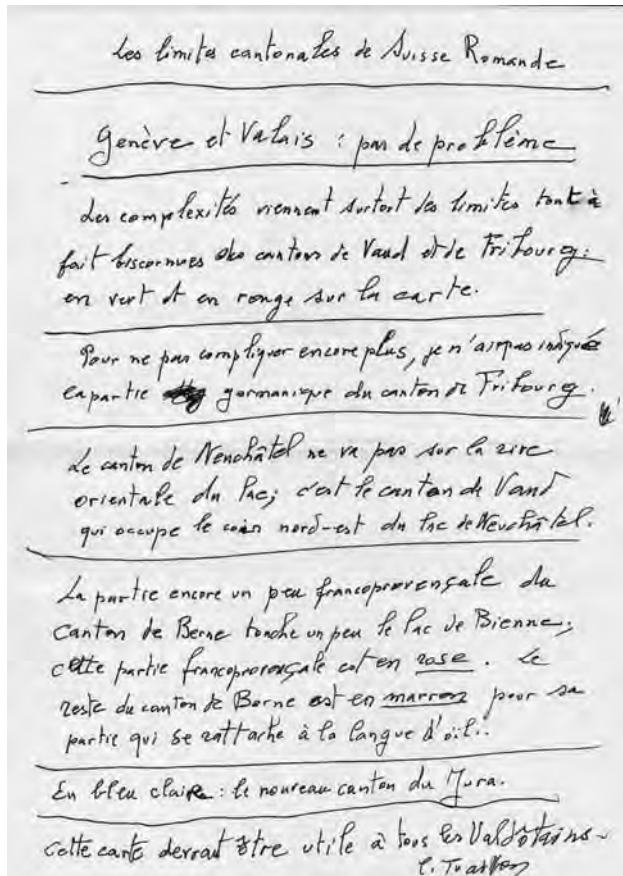 Les limites cantonales de Suisse Romande
Genève et Valais : pas de problème
Les complexités viennent surtout des limites tout à
fait biscornues des cantons de Vaud et de Fribourg :
en vert et en rouge sur la carte.
Pour ne pas compliquer encore plus, je n'ai pas indiqué
la partie germanique du canton de Fribourg.
Le canton de Neuchâtel ne va pas sur la rive
orientale du lac; c'est le canton de Vaud
qui occupe le coin nord-est du lac de Neuchâtel.
La partie encore un peu francoprovençale du
Canton de Berne touche un peu le lac de Bienne;
cette partie francoprovençale est en rose. Le
reste du canton de Berne est en marron pour sa
partie qui se rattache à la langue d'oïl.
En bleu claire : le nouveau canton du Jura.
Cette carte devrait être utile à tous les Valdôtains